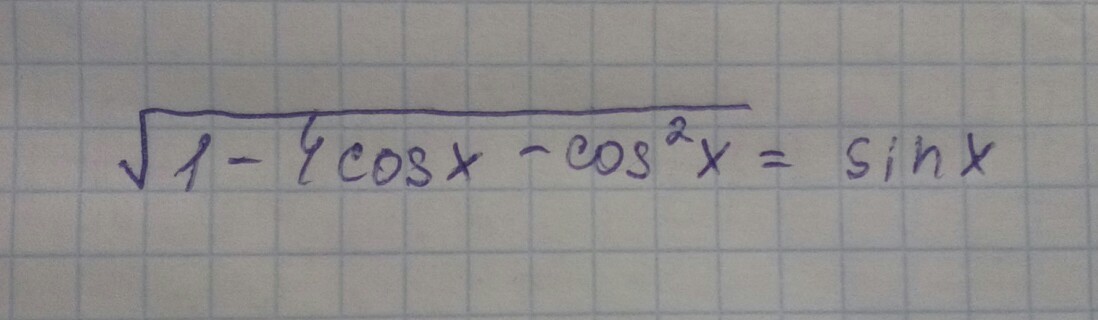 √1 - 4cosx - cos²x = sinx